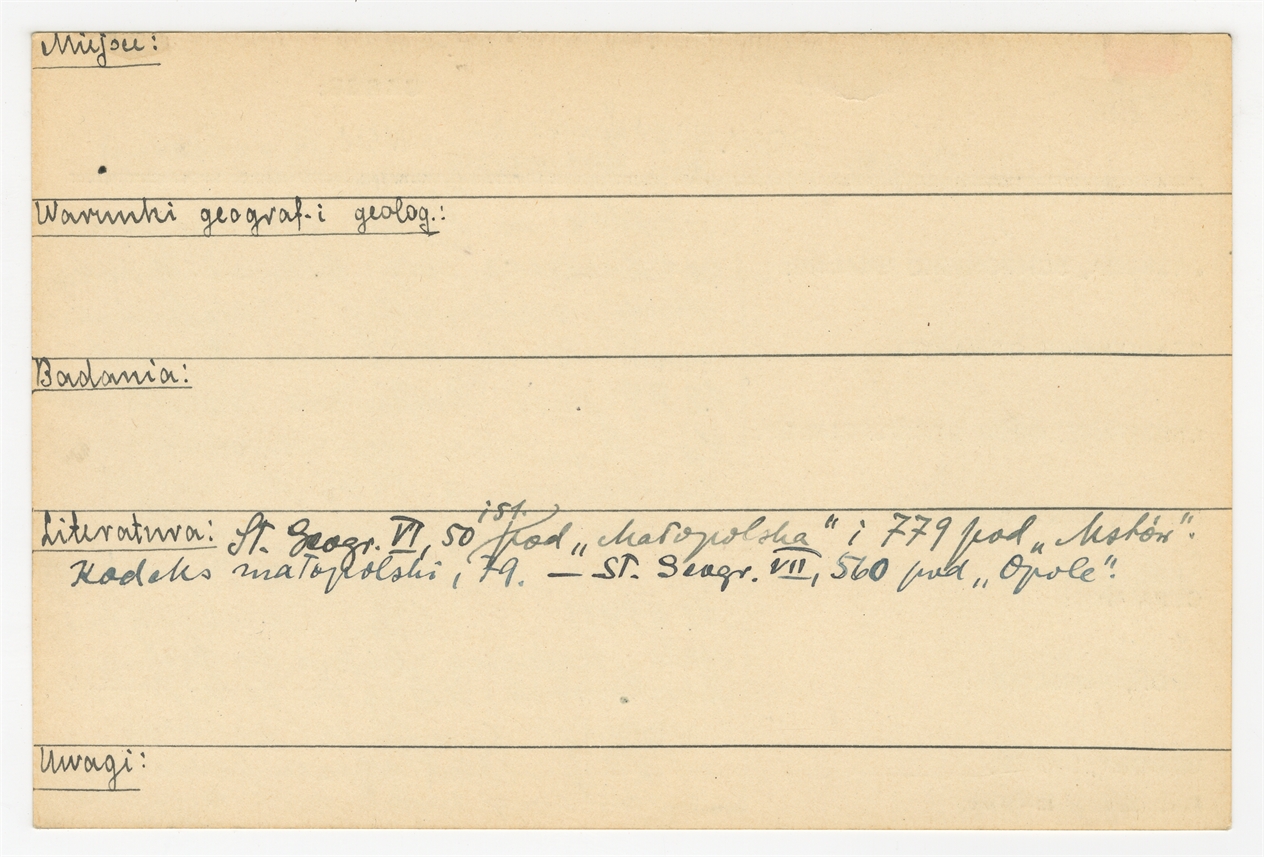 Miejsce:
Warunki geograf. i geolog.:
Badania:
i st.
Literatura: Sł. Geogr. VI, 50 pod „Małopolska" i 779 pod „Mstów".
Kodeks małopolski, 79. — Sł. Geogr. VII, 560 pod „Opole".
Uwagi: